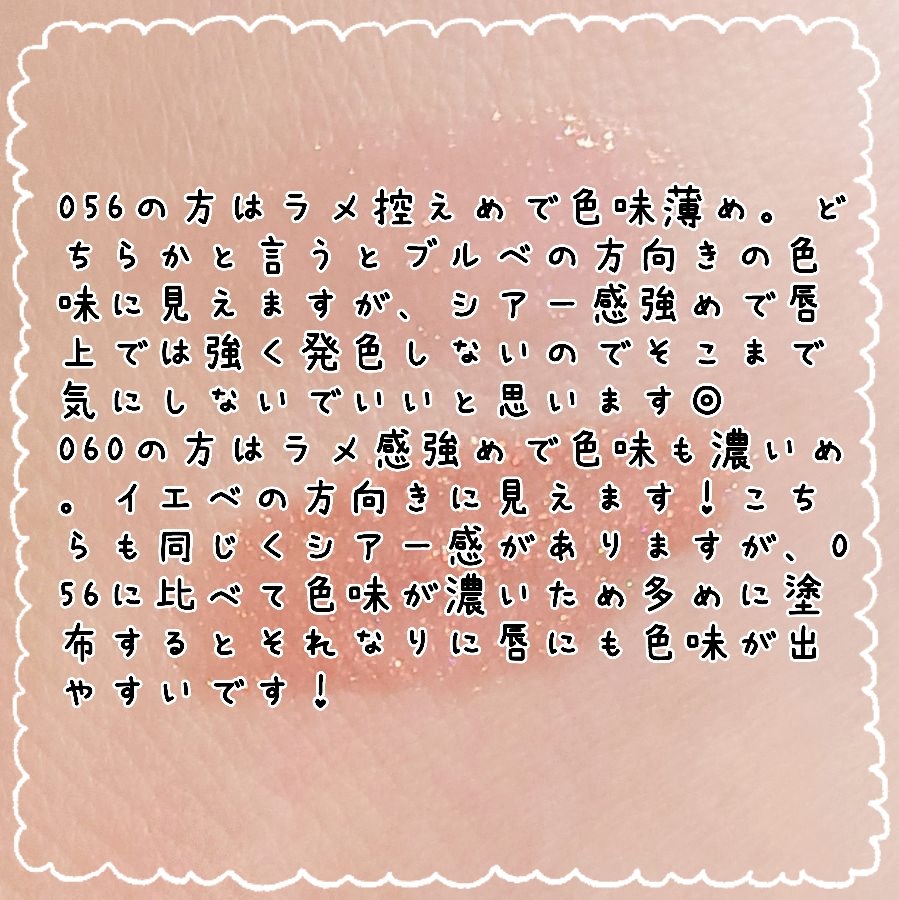 056の方はラメ控えめで色味薄め。ど
ちらかと言うとブルベの方向きの色
味に見えますが、シアー感強めで唇
上では強く発色しないのでそこまで
気にしないでいいと思います◎
060の方はラメ感強めで色味も濃いめ
。イエベの方向きに見えます！こち
らも同じくシアー感がありますが、0
56に比べて色味が濃いため多めに塗
布するとそれなりに唇にも色味が出
やすいです！